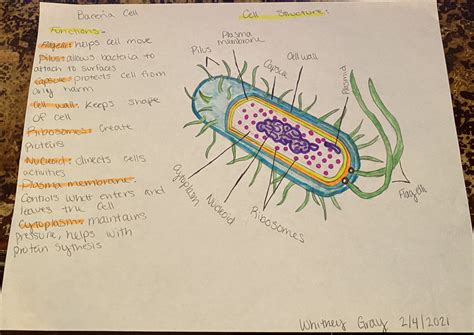 Bacteria Cell
Cell Structure:
Functions-
Flagella: helps cell move
Pilus: allows bacteria to
attach to surfaces
Capsule: protects cell from
any harm
Cell wall: Keeps shape
of cell
Ribosomes: Create
Proteins
Nucleoid: directs cells
activities
Plasma membrane:
Controls what enters and
leaves the cell
Cytoplasm: maintains
pressure, helps with
protein sythesis
Pilus
Plasma
membrane
Capsule
Cell wall
Plasmid
Cytoplasm
Nucleoid
Ribosomes
Flagelli
Whitney Gray 2/4/2021